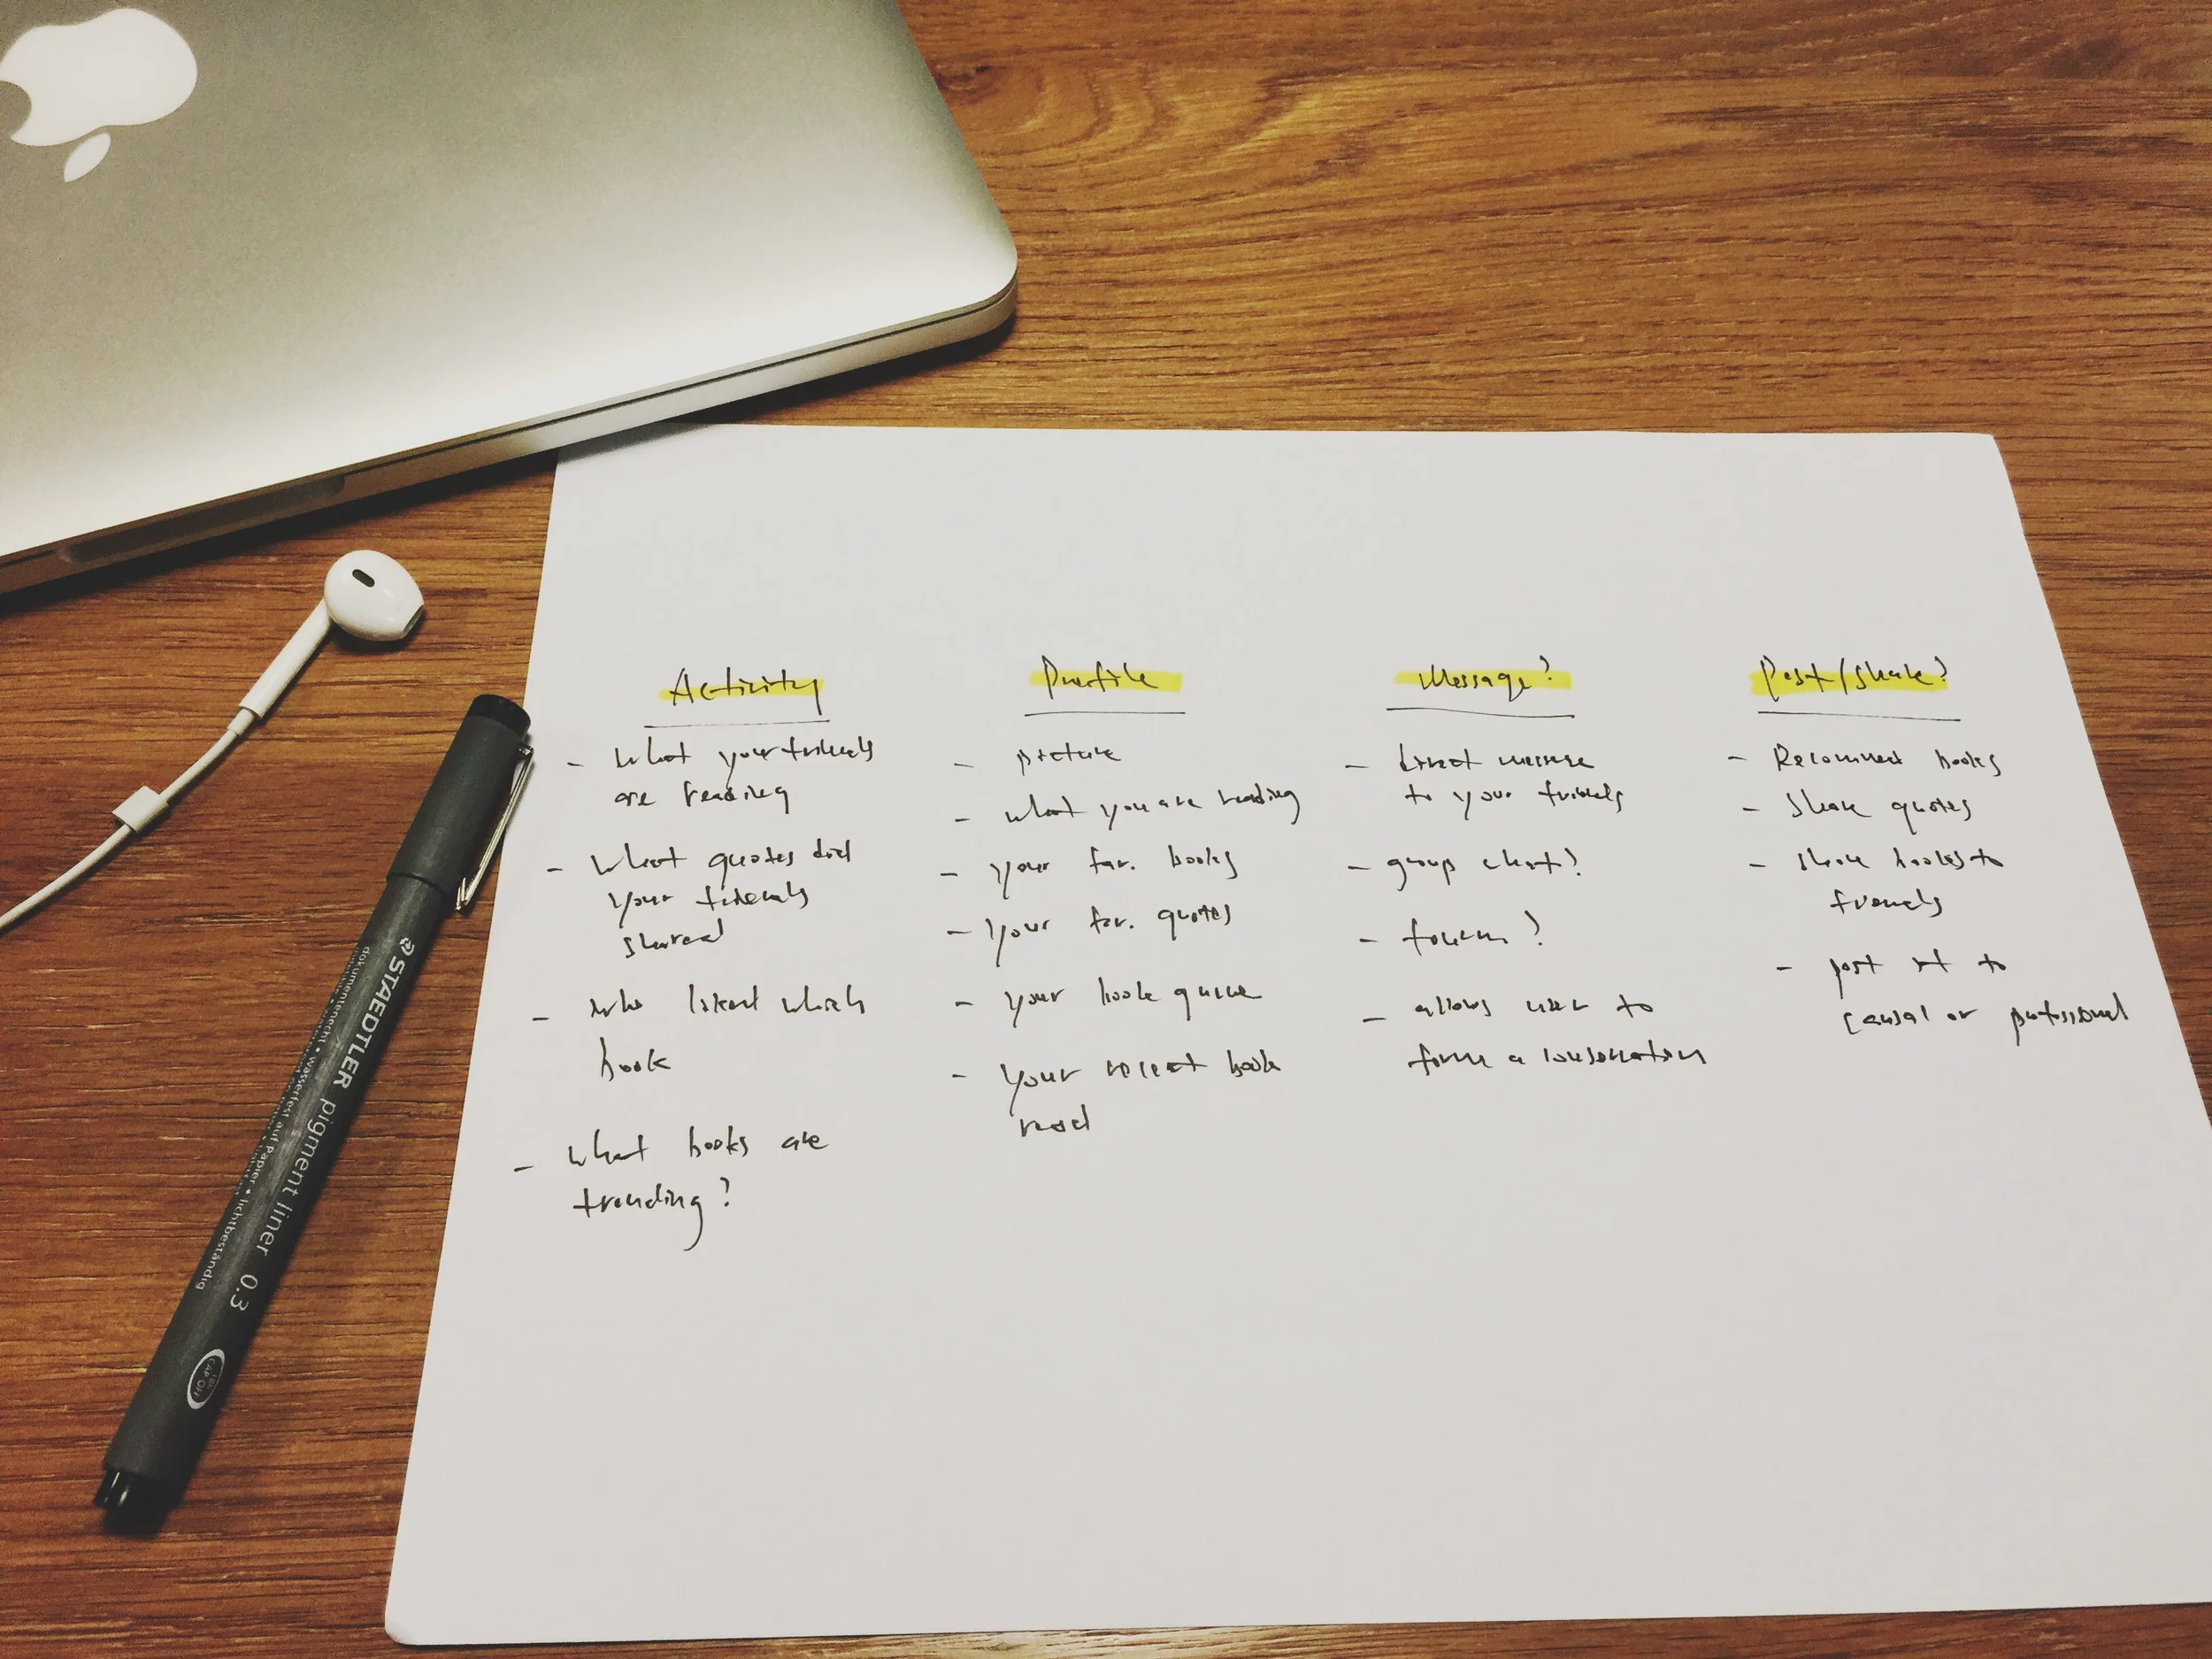 Activity
- What your friends
are reading
- What quotes did
your friends
shared
- who liked which
book
- What books are
trending?
Profile
- picture
- what you are reading
- your fav. books
- your fav. quotes
- your book queue
- your recent book
read
Message?
- direct message
to your friends
- group chat?
- forum?
- allows user to
form a conversation
Post/Share?
- Recommend books
- Share quotes
- share books to
friends
- post to
casual or professional
STAEDTLER pigment liner 0.3
dokumentenecht • wasserfest auf Papier • lichtbeständig
CAP OFF